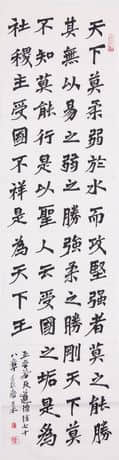 天下莫柔弱於水而攻堅強者莫之能勝
其無以易之弱之勝強柔之勝剛天下莫
不知莫能行是以聖人云受國之垢是為
社稷主受國不祥是為天下王
道德經七十
八章